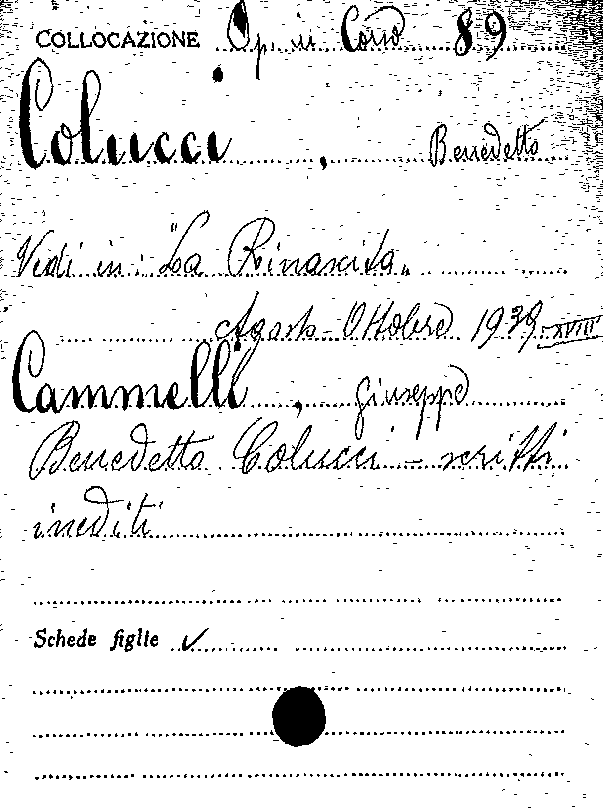 COLLOCAZIONE Op. in Corso 89
Colucci, Benedetto
Vedi in: "La Rinascita„
Agosto-Ottobre 1939-XVIII
Cammelli, Giuseppe
Benedetto Colucci - scritti
inediti
Schede figlie ✓